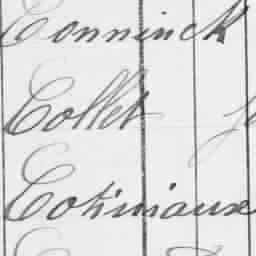 Conninck
Collet
Cotiniaux